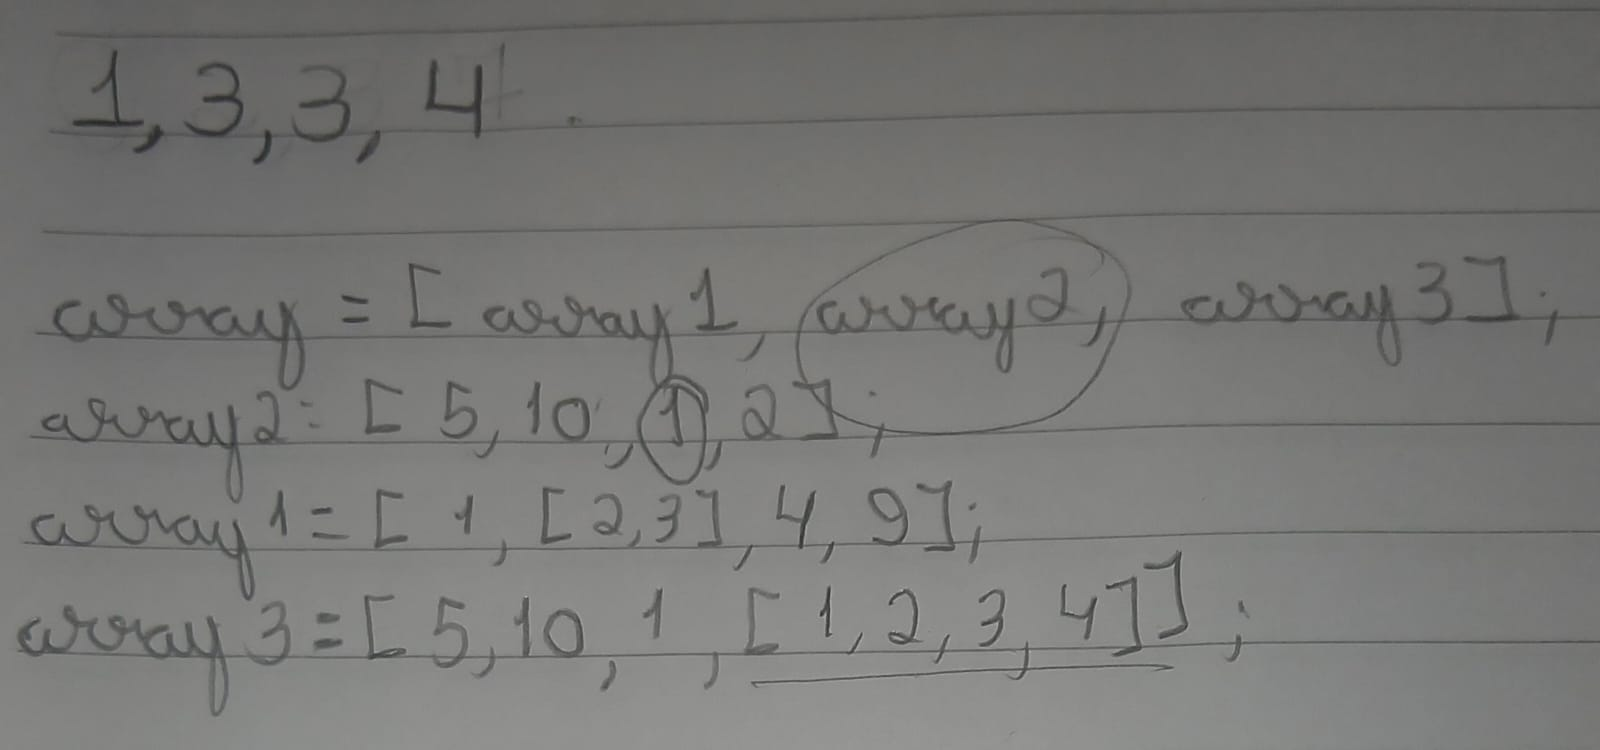 1, 3, 3, 4
array = [ array1, array2, array3 ];
array2 = [ 5, 10, 1, 2 ];
array1 = [ 1, [ 2, 3 ], 4, 9 ];
array3 = [ 5, 10, 1, [ 1, 2, 3, 4 ] ];